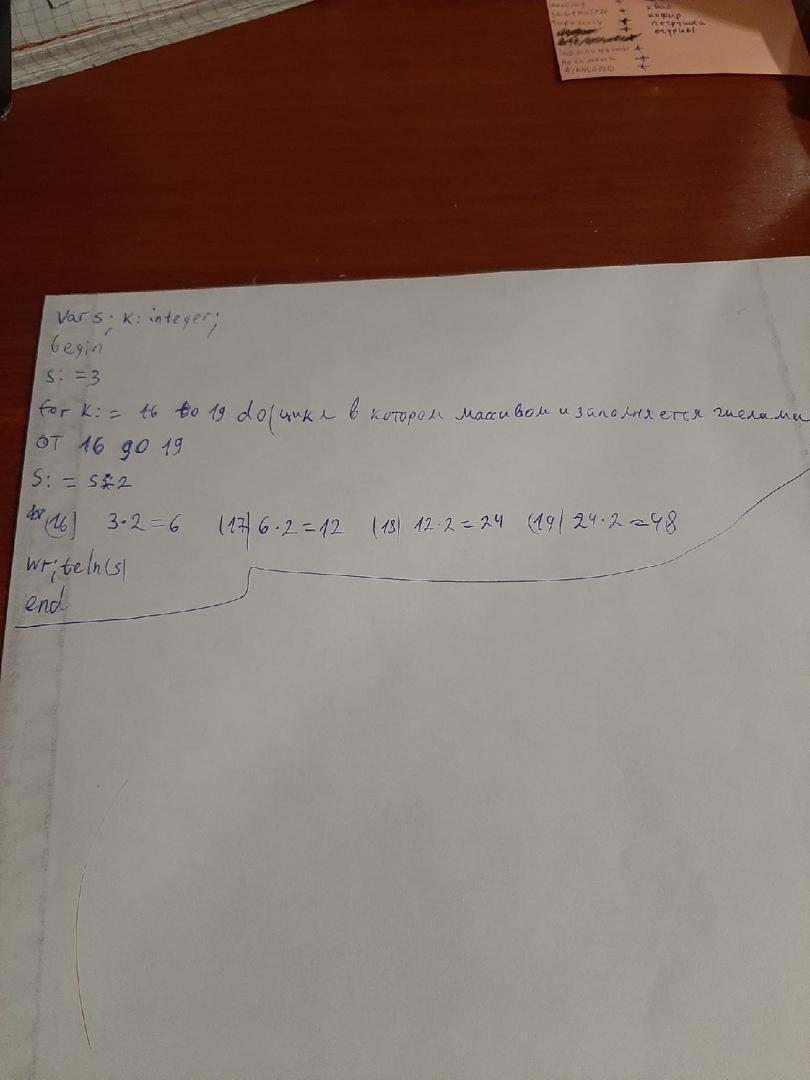 квас
кефир
петрушка
огурцы
Var s; k: integer;
begin
s: =3
for k: = 16 to 19 do(цикл в котором массивом и заполняется числами
от 16 до 19
S: = s*2
(16) 3·2=6 (17) 6·2=12 (18) 12·2=24 (19) 24·2=48
writeln(s)
end